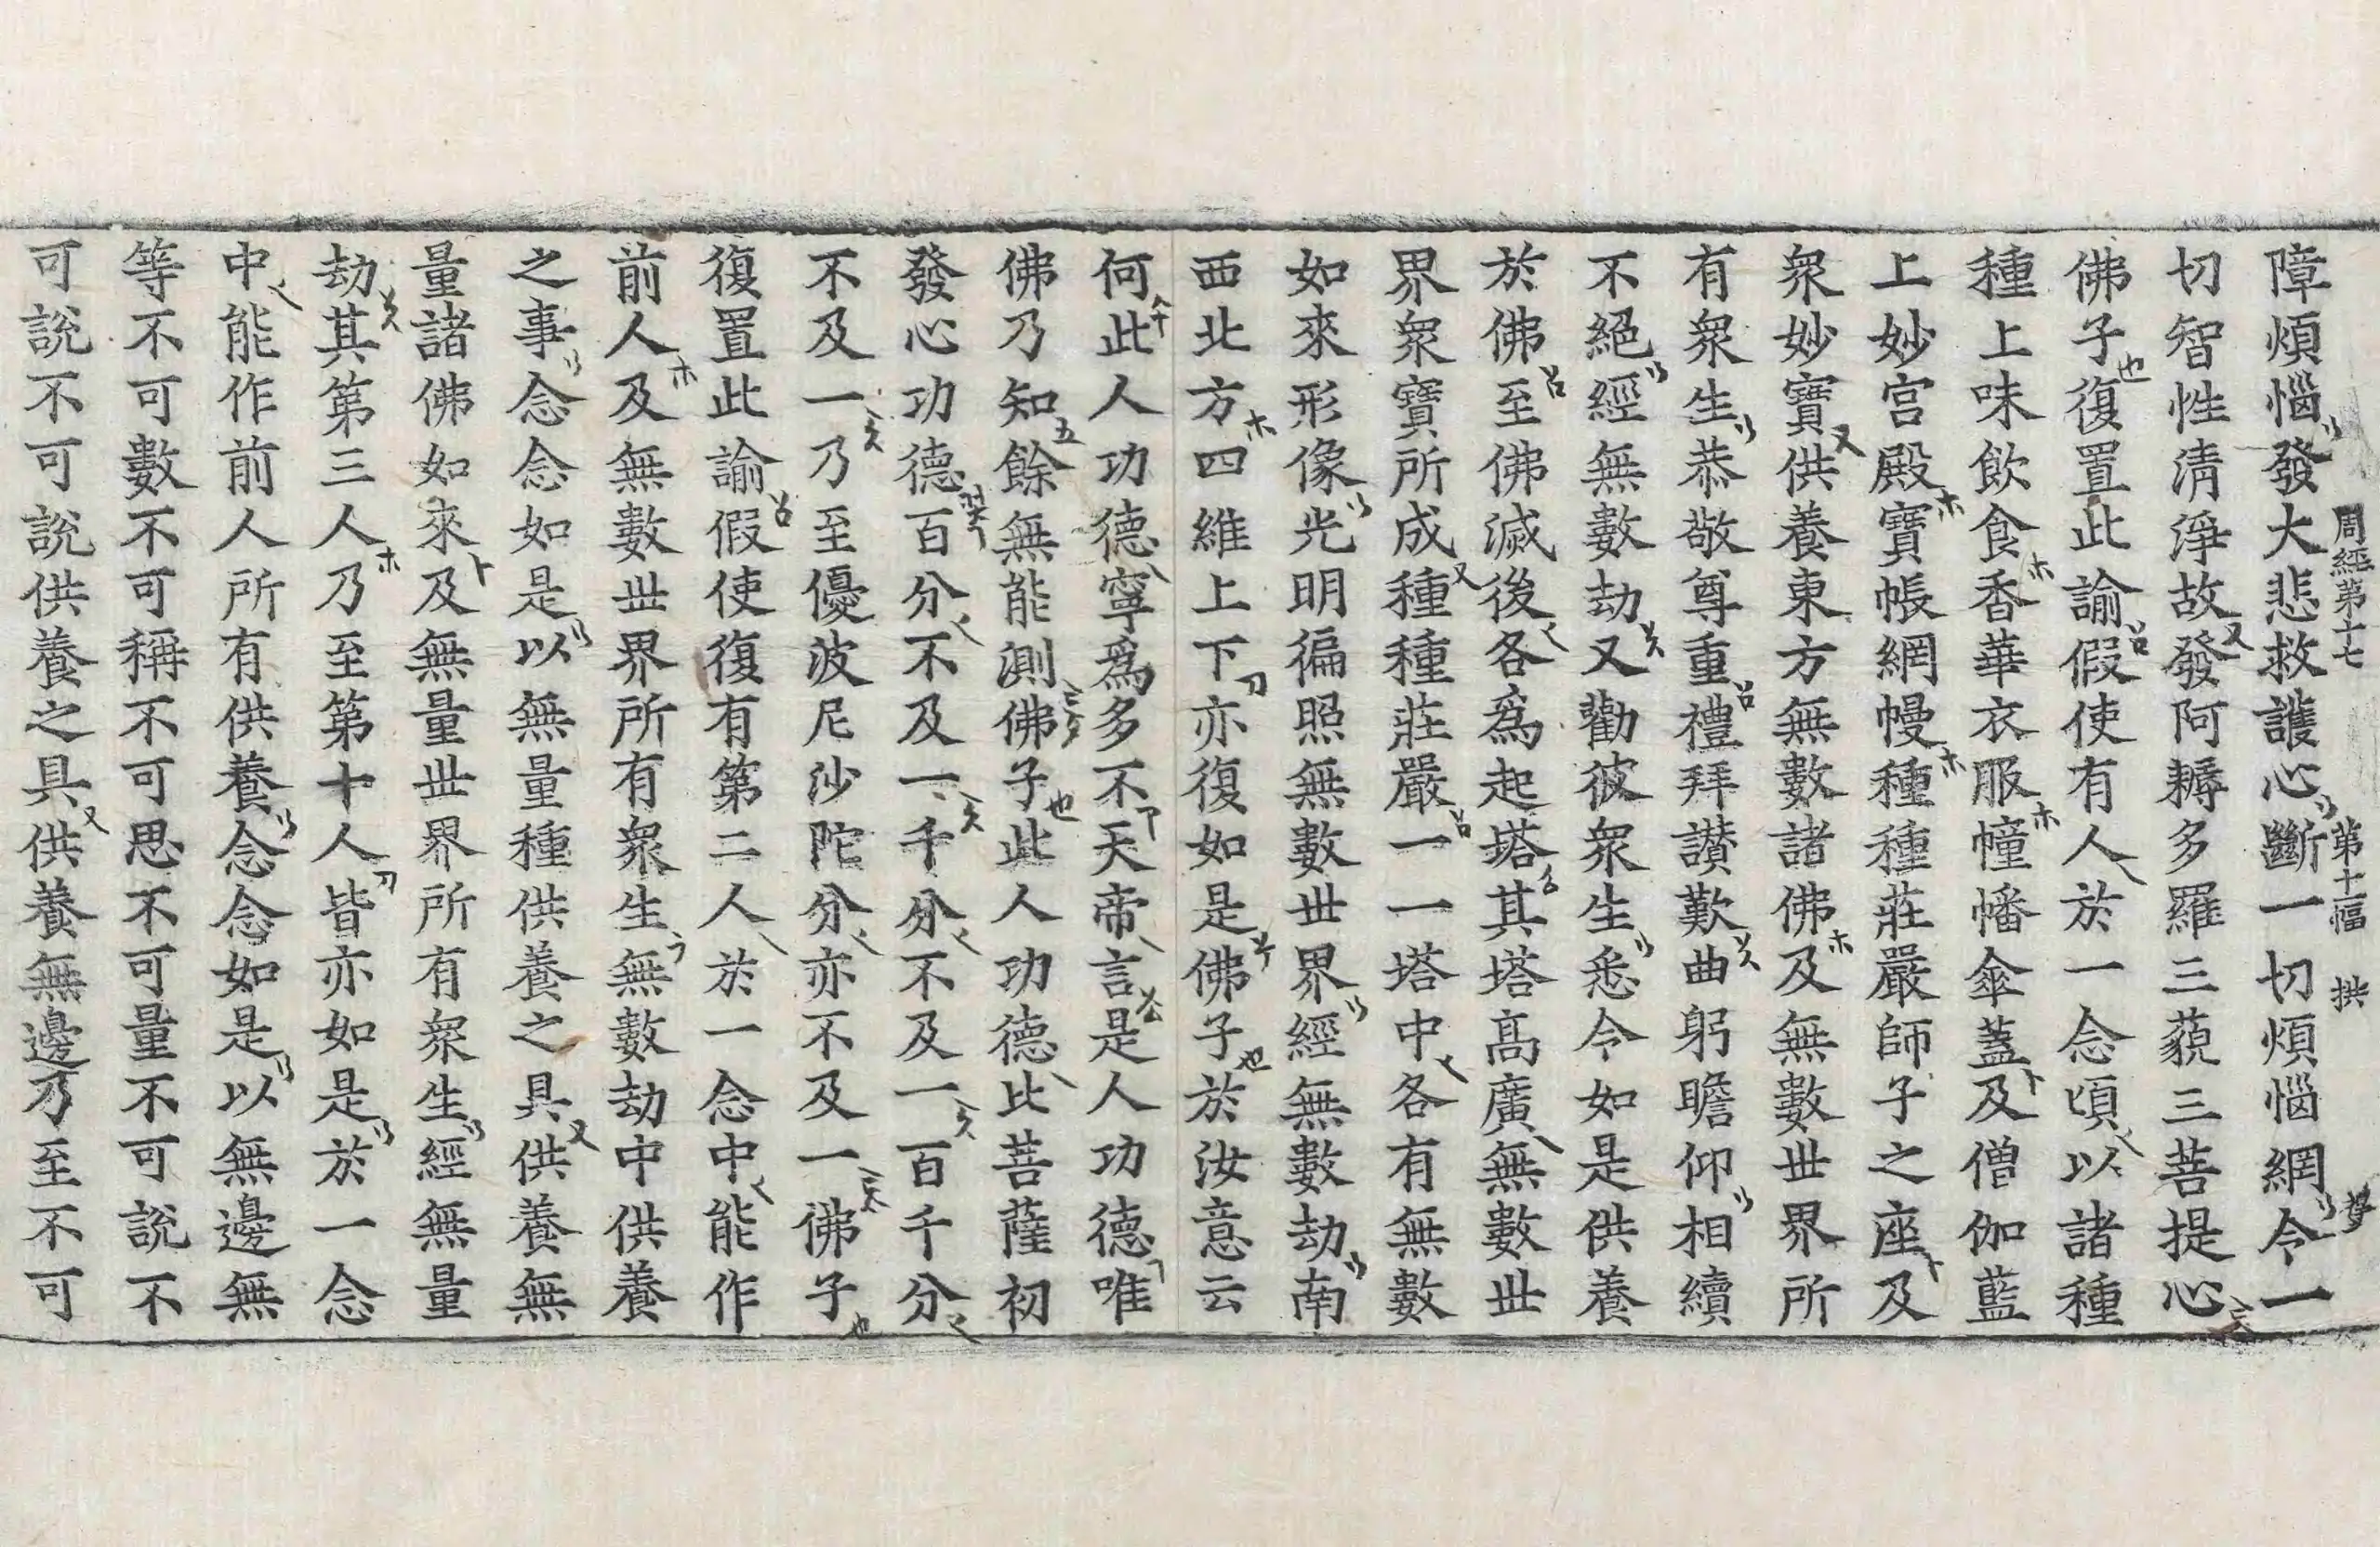 周經第十七 第十一幅 拱
障煩惱發大悲救護心斷一切煩惱網令一
切智性清淨故發阿耨多羅三藐三菩提心
佛子復置此諭假使有人於一念頃以諸種
種上味飲食香華衣服幢幡傘蓋及僧伽藍
上妙宮殿寶帳網幔種種莊嚴師子之座及
衆妙寶供養東方無數諸佛及無數世界所
有衆生恭敬尊重禮拜讃歎曲躬瞻仰相續
不絕經無數劫又勸彼衆生悉令如是供養
於佛至佛滅後各爲起塔其塔髙廣無數世
界衆寶所成種種莊嚴一一塔中各有無數
如來形像光明徧照無數世界經無數劫南
西北方四維上下亦復如是佛子於汝意云
何此人功德寧爲多不天帝言是人功德唯
佛乃知餘無能測佛子此人功德比菩薩初
發心功德百分不及一千分不及一百千分
不及一乃至優波尼沙陀分亦不及一佛子
復置此諭假使復有第二人於一念中能作
前人及無數世界所有衆生無數劫中供養
之事念念如是以無量種供養之具供養無
量諸佛如來及無量世界所有衆生經無量
劫其第三人乃至第十人皆亦如是於一念
中能作前人所有供養念念如是以無邊無
等不可數不可稱不可思不可量不可說不
可說不可說供養之具供養無邊乃至不可